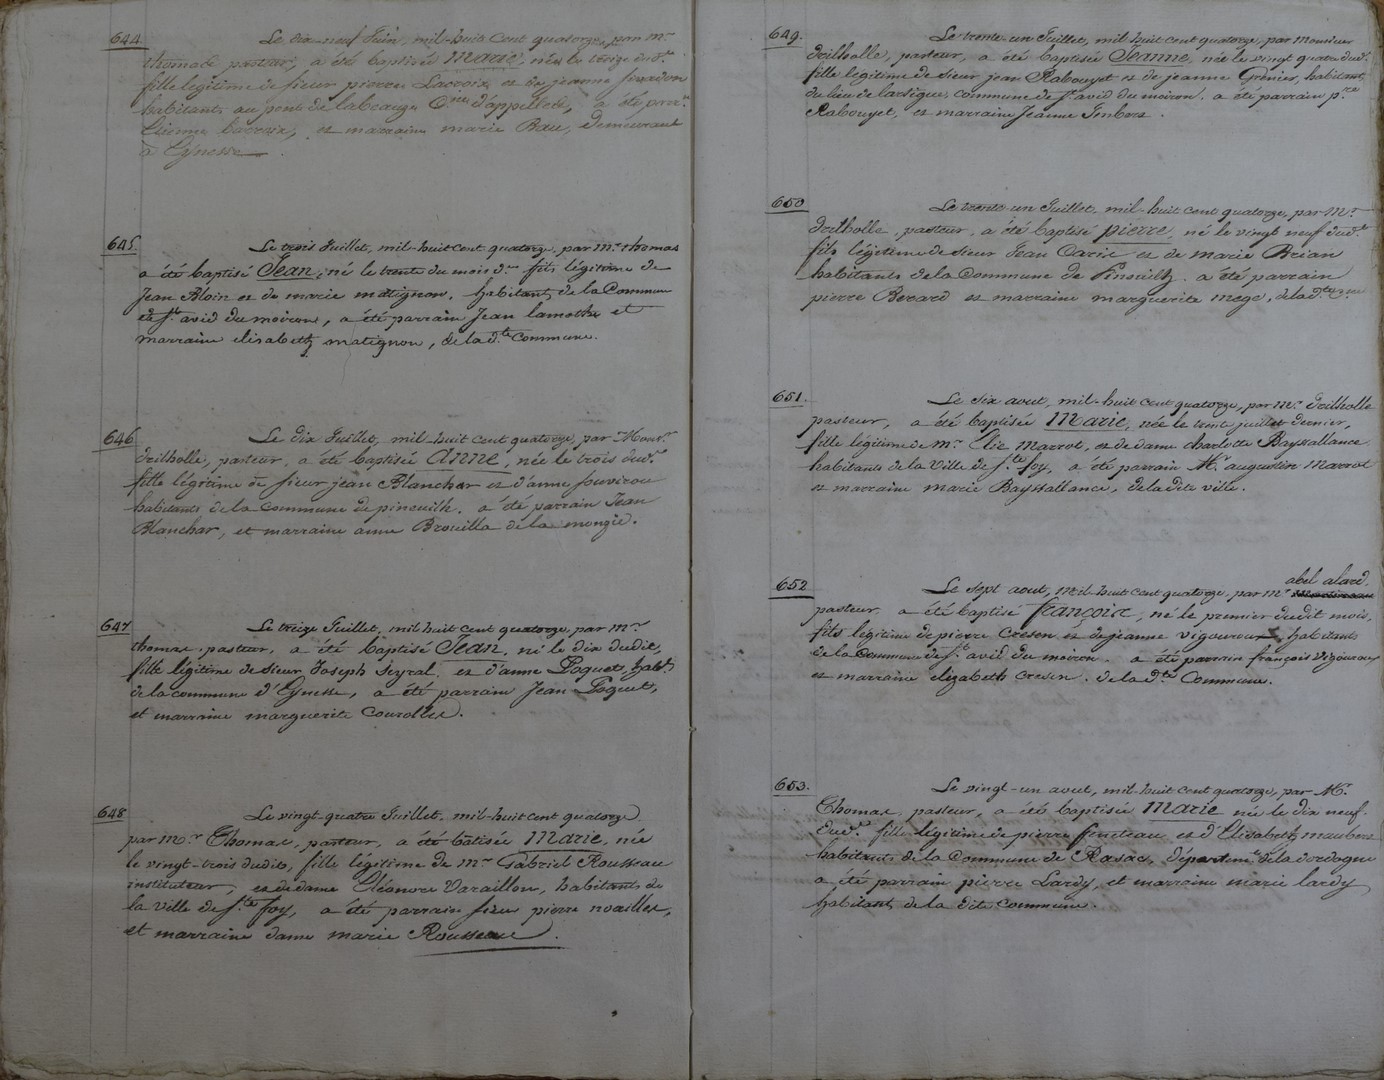 644 Le dix-neuf Juin, mil-huit cent quatorze, par mr
thomas pasteur, a été baptisée Marie, née le treize
fille légitime de sieur pierre Lacroix, et de jeanne
habitants au pont de labeauze Cne d'appelles, a été parr.
Etienne Lacroix, et marraine marie Bau, demeurant
à Eynesse.
645. Le trois Juillet, mil-huit cent quatorze, par mr thomas
a été baptisé Jean, né le trente du mois dr fils légitime de
Jean Bloin et de marie matignon, habitants de la Commune
de St avid du moiron, a été parrain Jean lamothe et
marraine elisabeth matignon, de la dte Commune.
646 Le dix Juillet, mil-huit cent quatorze, par Monsr
drilholle, pasteur, a été baptisée Anne, née le trois dud.t
fille légitime de sieur jean Blanchar et d'anne souvirou
habitants de la commune de pineuilh. a été parrain Jean
Blanchar, et marraine anne Brouilla de la mongie.
647 Le treize Juillet, mil huit cent quatorze, par mr
thomas, pasteur, a été baptisé Jean, né le dix dudit,
fils légitime de sieur Joseph Seyral. et d'anne Poquet, habts
de la commune d'Eynesse, a été parrain Jean Poquet,
et marraine marguerite Courolles.
648 Le vingt-quatre Juillet, mil-huit cent quatorze
par mr Thomas, pasteur, a été bâtisée Marie, née
le vingt-trois dudits, fille légitime de mr Gabriel Rousseau
instituteur, et de dame Eléonore Varaillon, habitants de
la ville de Ste foy, a été parrain sieur pierre noailles,
et marraine dame marie Rousseau.
649. Le trente-un Juillet, mil huit cent quatorze, par Monsieur
drilholle, pasteur, a été baptisée Jeanne, née le vingt quatre dud.t
fille légitime de sieur jean Rabouyet et de jeanne Grenier, habitants
du lieu de larsigue, commune de St avid du moiron. a été parrain pre
Rabouyet, et marraine Jeanne Imbert.
650 Le trente-un Juillet, mil-huit cent quatorze, par Mr
drilholle, pasteur, a été baptisé pierre, né le vingt neuf dud.t
fils légitime de sieur Jean Carie et de marie Brian
habitants de la Commune de Pineuilh. a été parrain
pierre Berard et marraine marguerite mege, de la dte
651. Le six aout, mil-huit cent quatorze, par mr. drilholle
pasteur, a été baptisée Marie, née le trente juillet dernier,
fille légitime de mr Elie Marrot, et de dame charlotte Bayssallance
habitants de la Ville de Ste foy, a été parrain Mr augustin Marrot
et marraine marie Bayssallance, de la dite ville.
652 Le sept aout, mil-huit cent quatorze, par mr abel alard.
pasteur, a été baptisé françois, né le premier dudit mois,
fils légitime de pierre Cresen et de jeanne vigouroux, habitants
de la Commune de St avid du moiron. a été parrain françois vigouroux
et marraine elizabeth cresen. de la dte Commune.
653. Le vingt-un aout, mil huit cent quatorze, par Mr.
Thomas, pasteur, a été baptisée Marie née le dix neuf
dud.t fille légitime de pierre feneteau et d'Elisabeth
habitants de la Commune de Rasac, départemt de la dordogne
a été parrain pierre Lardy, et marraine marie lardy
habitants de la dite commune.